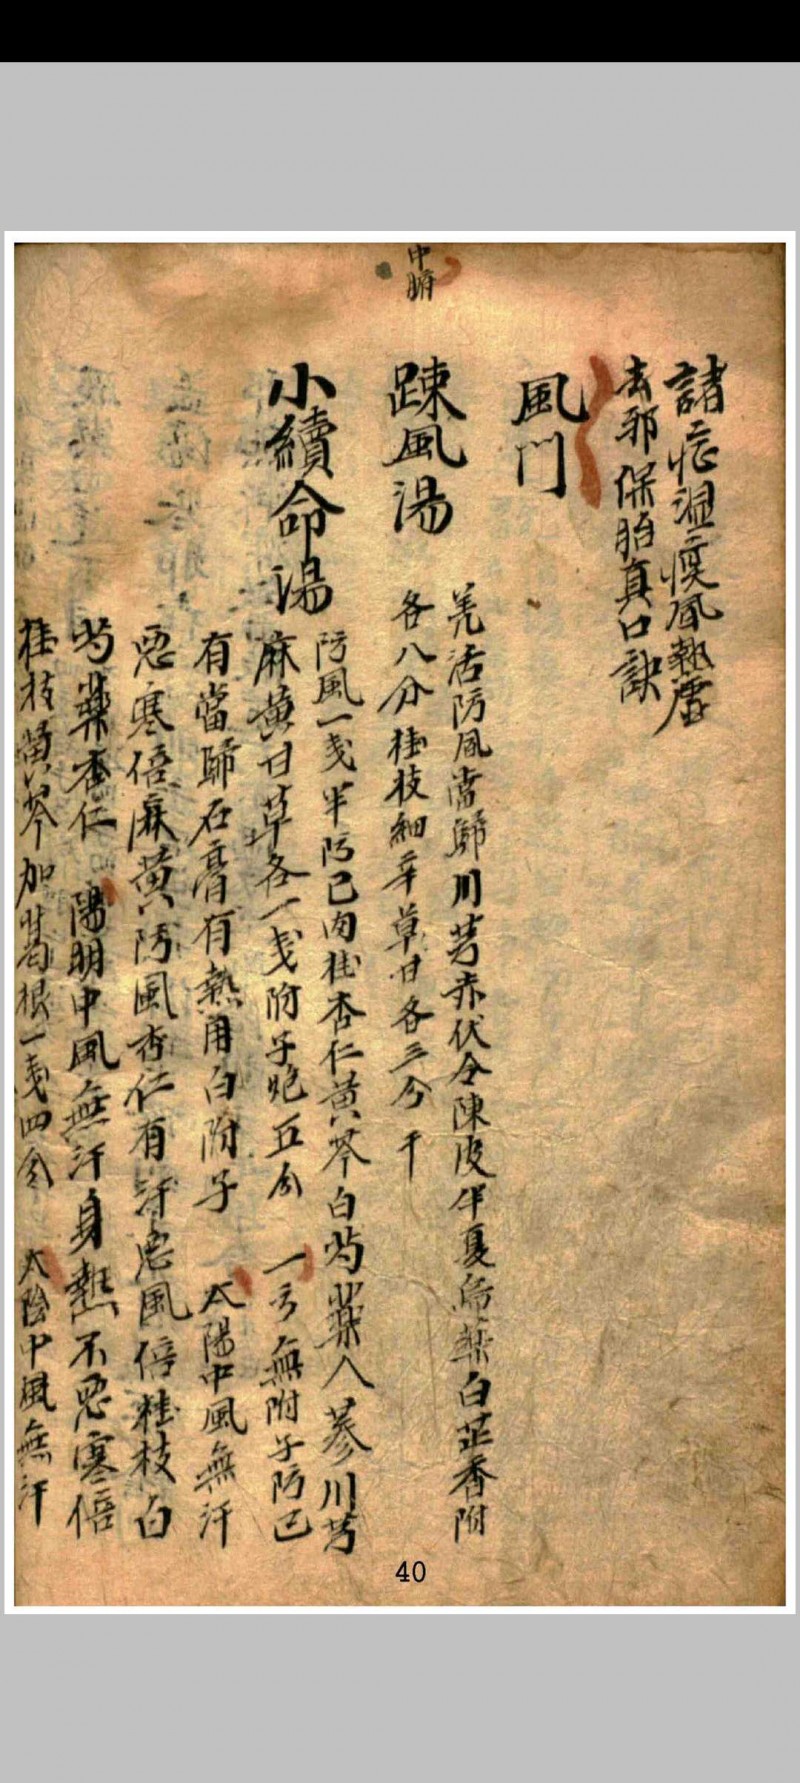 諸症温痰風熱虛
去邪保胎真口訣
風門
中腑
踈風湯
羌活防風當歸川芎赤伏令陳皮半夏烏藥白芷香附
各八分桂枝細辛草甘各三分干
小續命湯
防風一戔半防己肉桂杏仁黃芩白芍藥人蔘川芎
麻黃甘草各一戔附子炮五分 一方無附子防己
有當歸石膏有熱用白附子 太陽中風無汗
惡寒倍麻黃防風杏仁有汗惡風倍桂枝白
芍藥杏仁 陽明中風無汗身熱不惡寒倍
桂枝黃芩加葛根一戔四分 太陰中風無汗
40